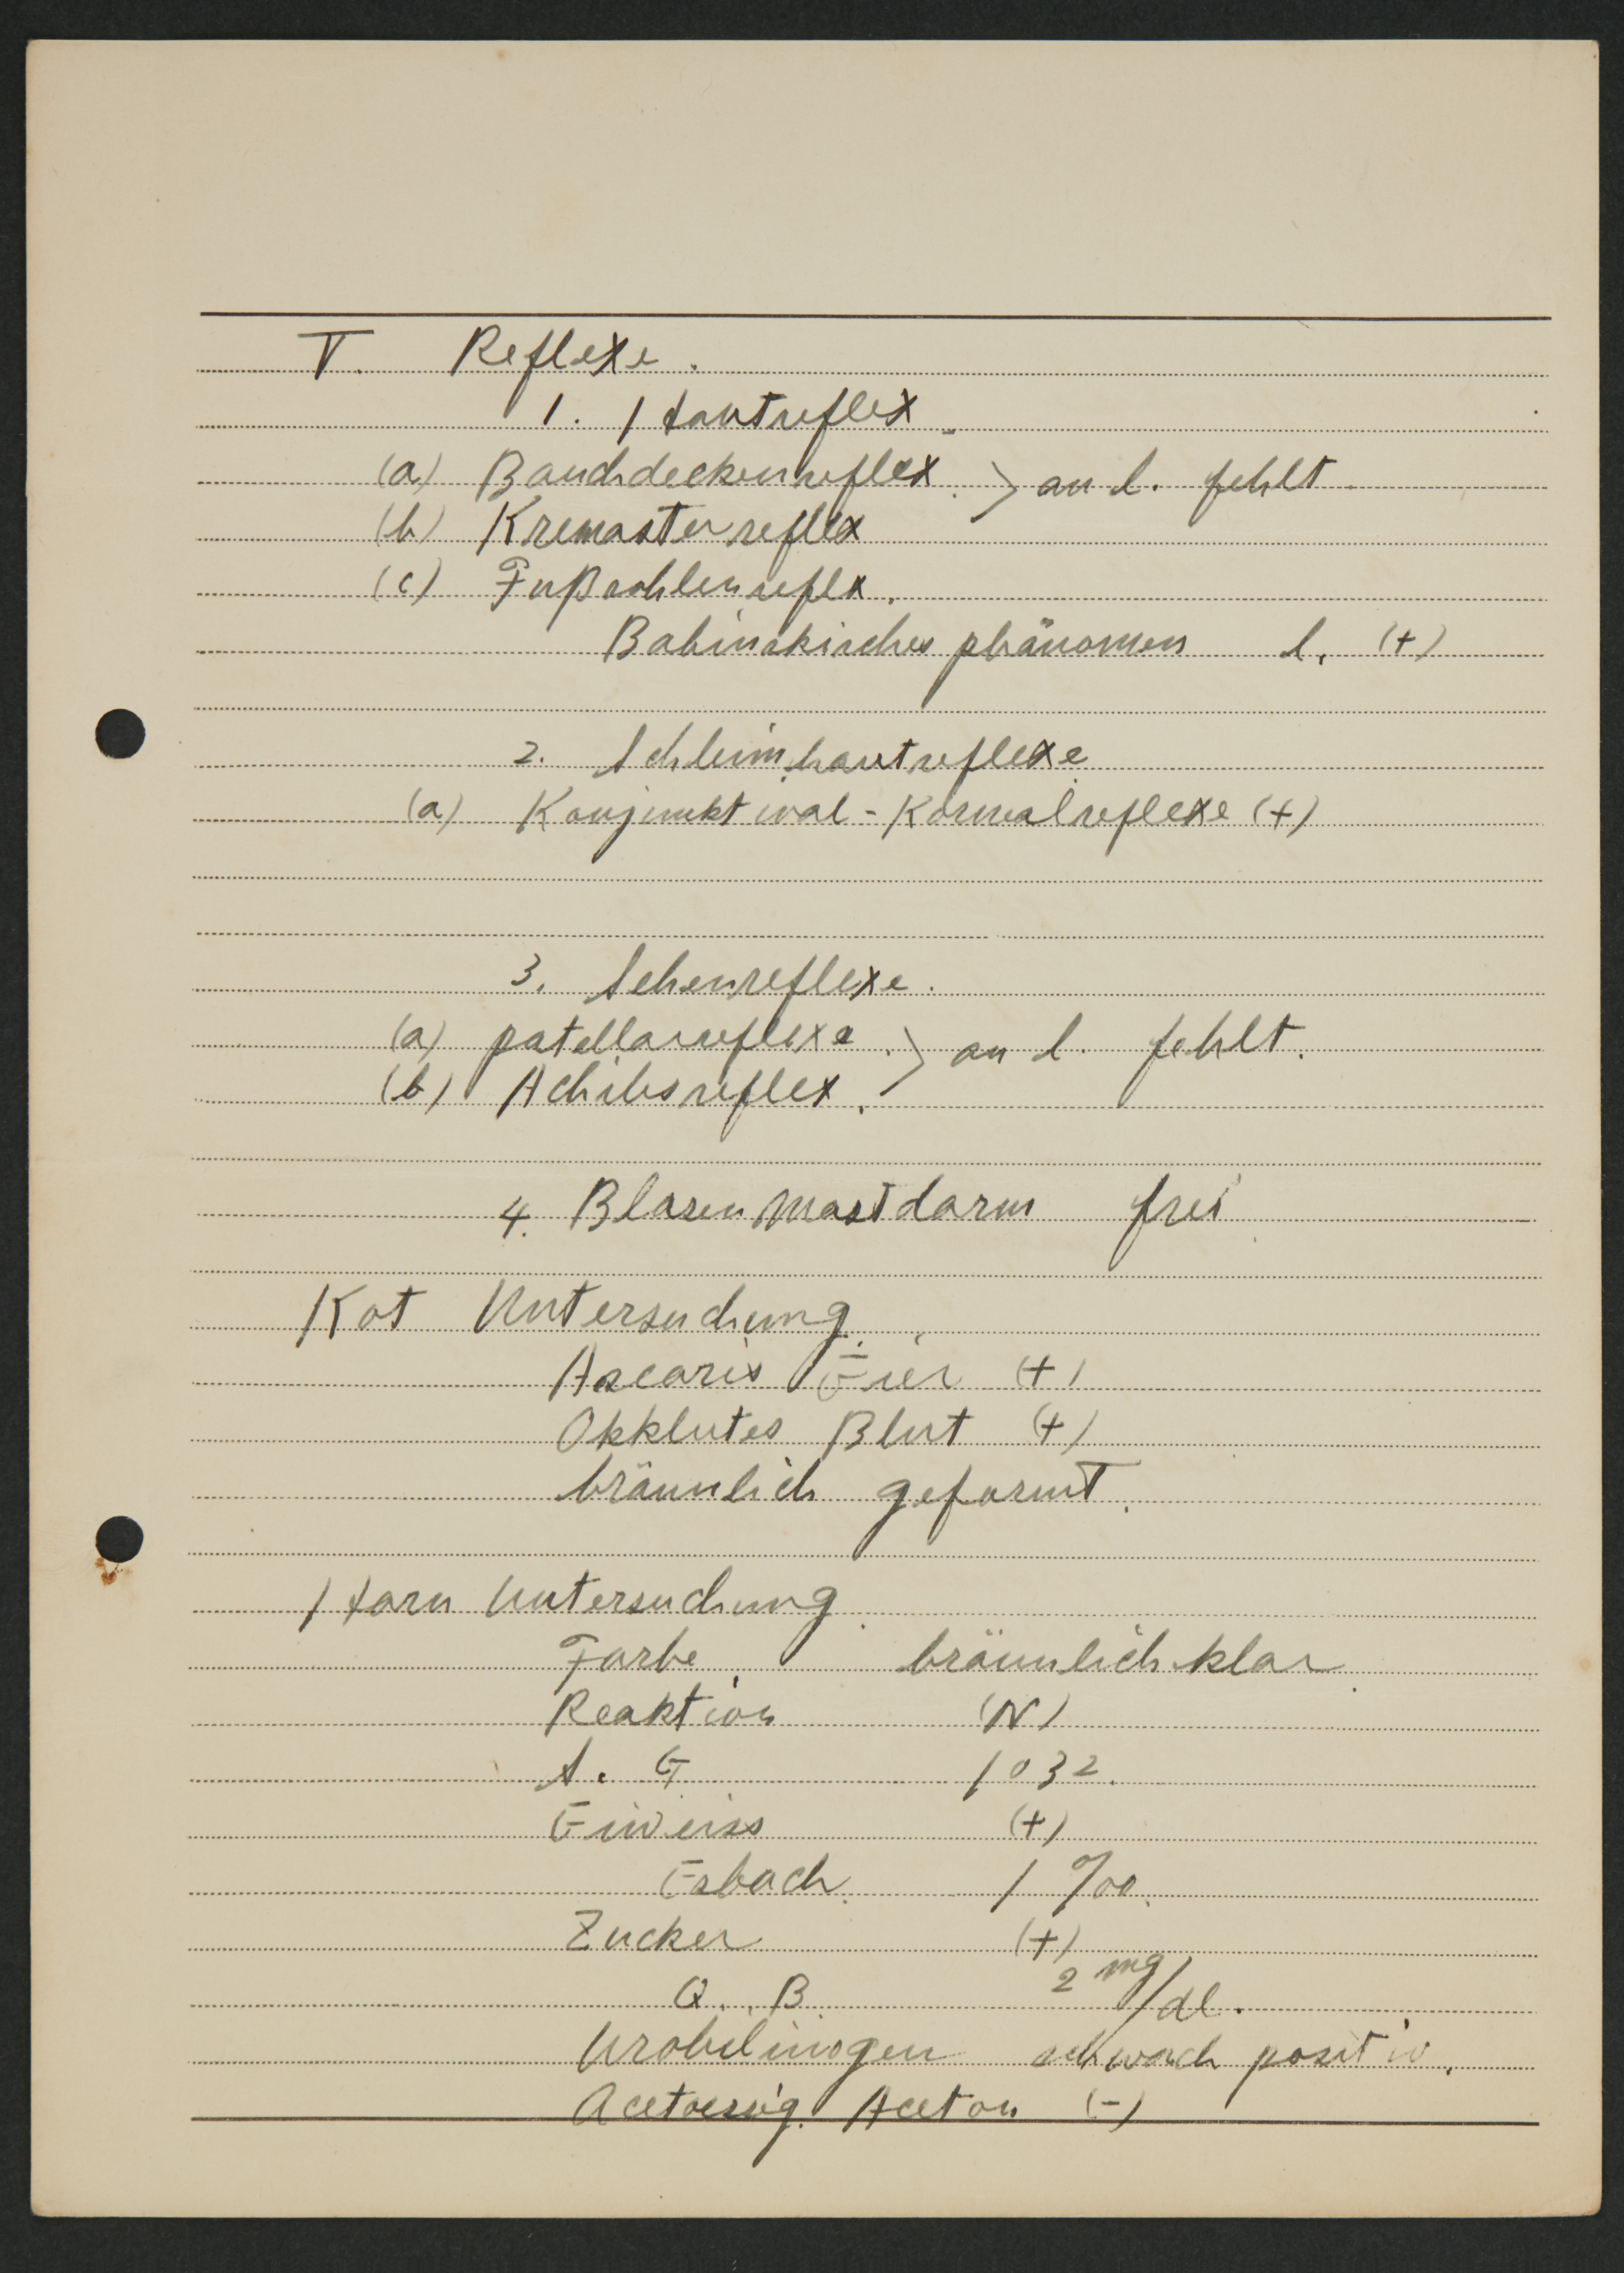 V. Reflexe.
1. Hautreflex
(a) Bauchdeckenreflex. } an l. fehlt.
(b) Kremasterreflex
(c) Fußsohlenreflx.
Babinskisches phänomen l. (+)
2. Schleimhautreflexe
(a) Konjunktival-Kornealreflexe (+)
3. Sehenreflexe.
(a) patellarreflexe. } an l. fehlt.
(b) Achilesreflex.
4. Blasen Mastdarm frei
Kot Untersuchung.
Ascaris Eier (+)
Okklutes Blut (+)
bräunlich geformt.
Harn Untersuchung.
Farbe. bräunlich klar.
Reaktion (N)
S. G 1032.
Eiweiss (+)
Esbach. 1 ‰.
Zucker (+)
Q. B. 2 mg/dl.
Urobilinogen schwach positiv.
Acetoessig. Aceton (-)